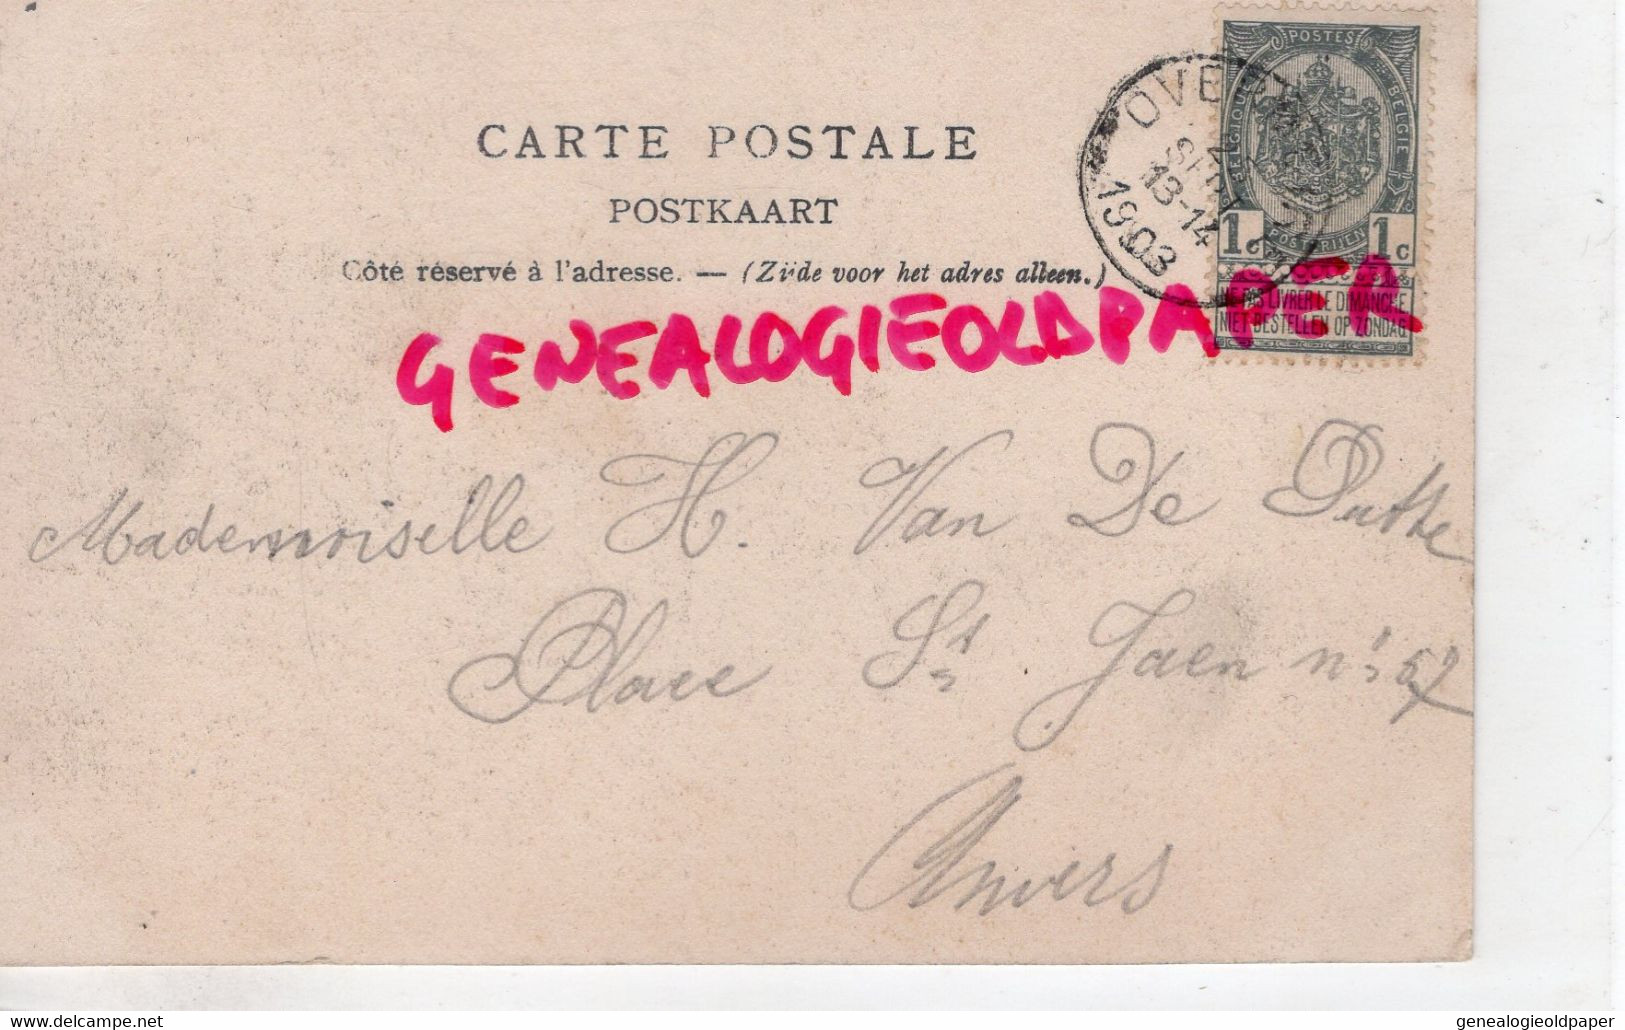 POSTES
BELGIQUE BELGIE
CARTE POSTALE
POSTKAART
1903
13-14
1c POSTERIJEN 1c
Côté réservé à l'adresse. — (Zijde voor het adres alleen.)
NE PAS LIVRER LE DIMANCHE
NIET BESTELLEN OP ZONDAG
GENEALOGIEOLDPAPER
Mademoiselle H. Van De Putte
Place St Jaen n: 57
Anvers
www.delcampe.net
genealogieoldpaper